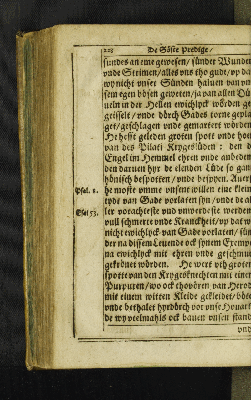 228 De Söste Predige/
sundes an eme gewesen/ sünder Wunden
vnde Strimen/ alles vns tho gude/ vp da
wy nicht vnser Sünden haluen van vn
sem egen bösen geweten/ ja van allen Dü
ueln in der Hellen ewichlyck wörden ge
geisselt/ vnde dörch Gades torne gepla
get/ geschlagen vnde gemartert wörden
He hefft geleden groten spott vnde hoen
van des Pilati Krygeslüden: den de
Engel im Hemmel ehren vnde anbeden
den daruen hyr de elenden Lüde so gan
hönisch bespotten/ vnde bespyen. Auers
Psal. 8. he moste vmme vnsent willen eine klein
tydt van Gade vorlaten syn/ vnde de al
Esa 53. ler vorachteste vnd vnwerdeste werden
vull schmerte vnde Kranckheit/ vp dat w
nicht ewichlyck van Gade vorlaten/ sün
der na dissem Leuende ock synem Exempe
na ewichlyck mit ehren vnde geschmu
gekrönet wörden. He wert vth groten
spotte van den Krygesknechten mit einer
Purpuren/ wo ock thovören van Herod
mit einem witten Kleide gekleidet/ böte
vnde bethalet hyrdörch vor vnse Houart
de wy veelmahls ock bauen vnsen stand
vnd